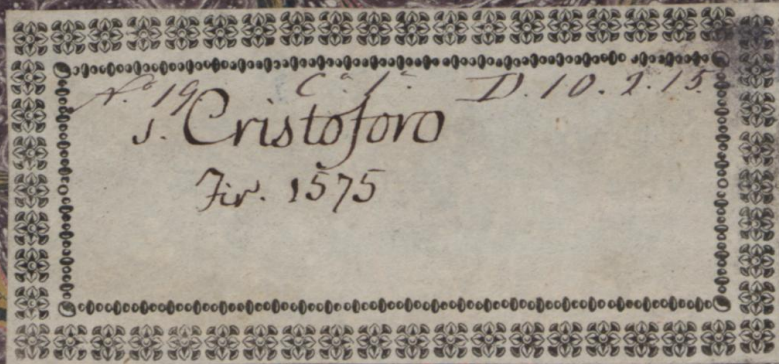 N.° 19 C.° 1.° D. 10. 2. 15.
s. Cristoforo
Fir. 1575